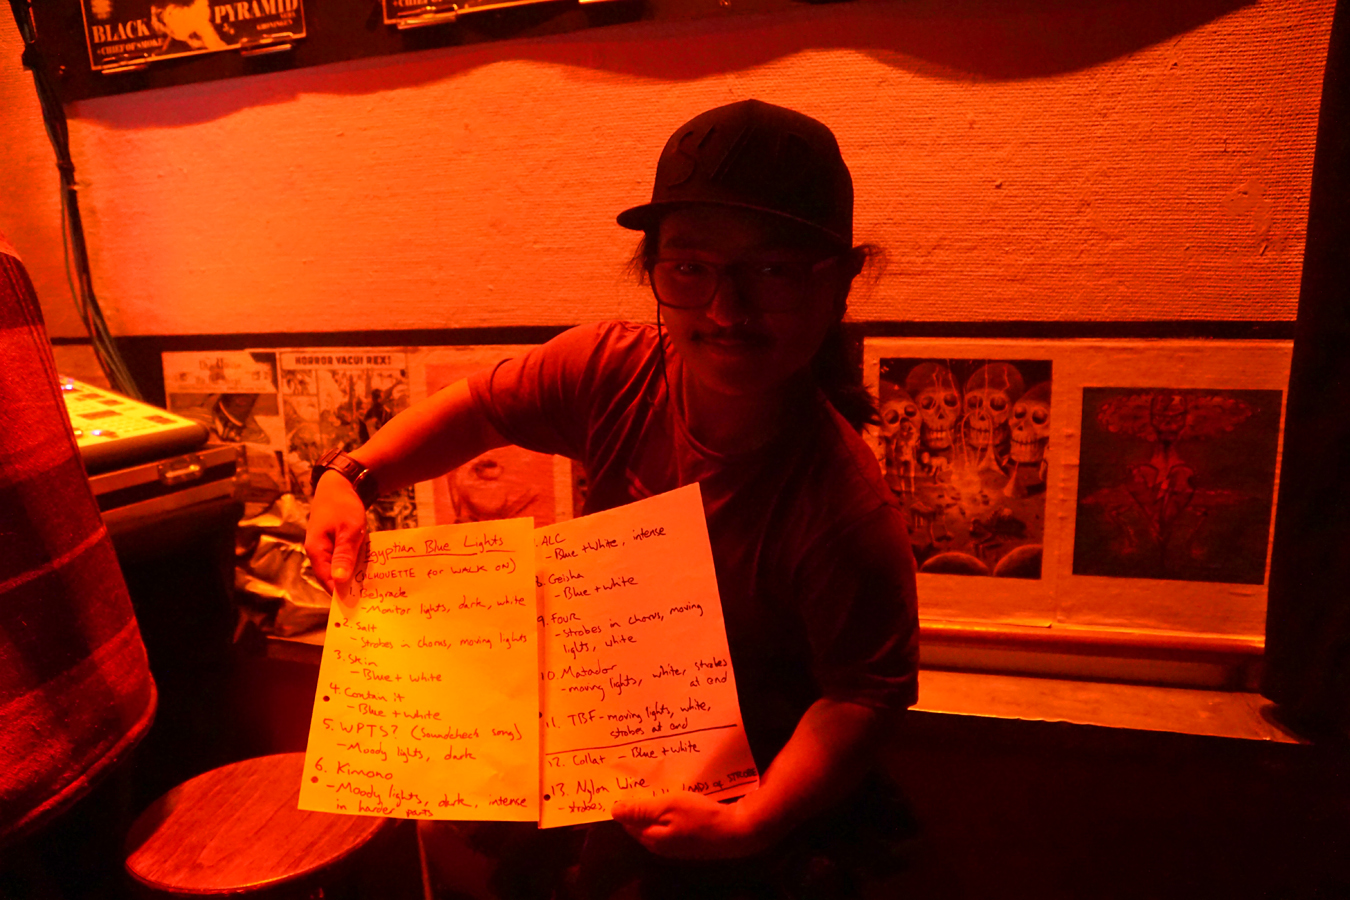 BLACK PYRAMID
+CHIEF OF SMOKE
GRONINGEN
HORROR VACUI REX!
Egyptian Blue Lights
(SILHOUETTE for WALK ON)
1. Belgrade
- Monitor lights, dark, white
2. Salt
- Strobes in chorus, moving lights
3. Skin
- Blue + white
4. Contain it
- Blue + white
5. WPTS? (Soundcheck song)
- Moody lights, dark
6. Kimono
- Moody lights, dark, intense
in harder parts
. ALC
- Blue + white, intense
8. Geisha
- Blue + white
9. FOUR
- strobes in chorus, moving
lights, white
10. Matador
- moving lights, white, strobes
at end
11. TBF - moving lights, white,
strobes at end
12. Collat - Blue + white
13. Nylon Wire
- strobes, LOADS OF STROBE